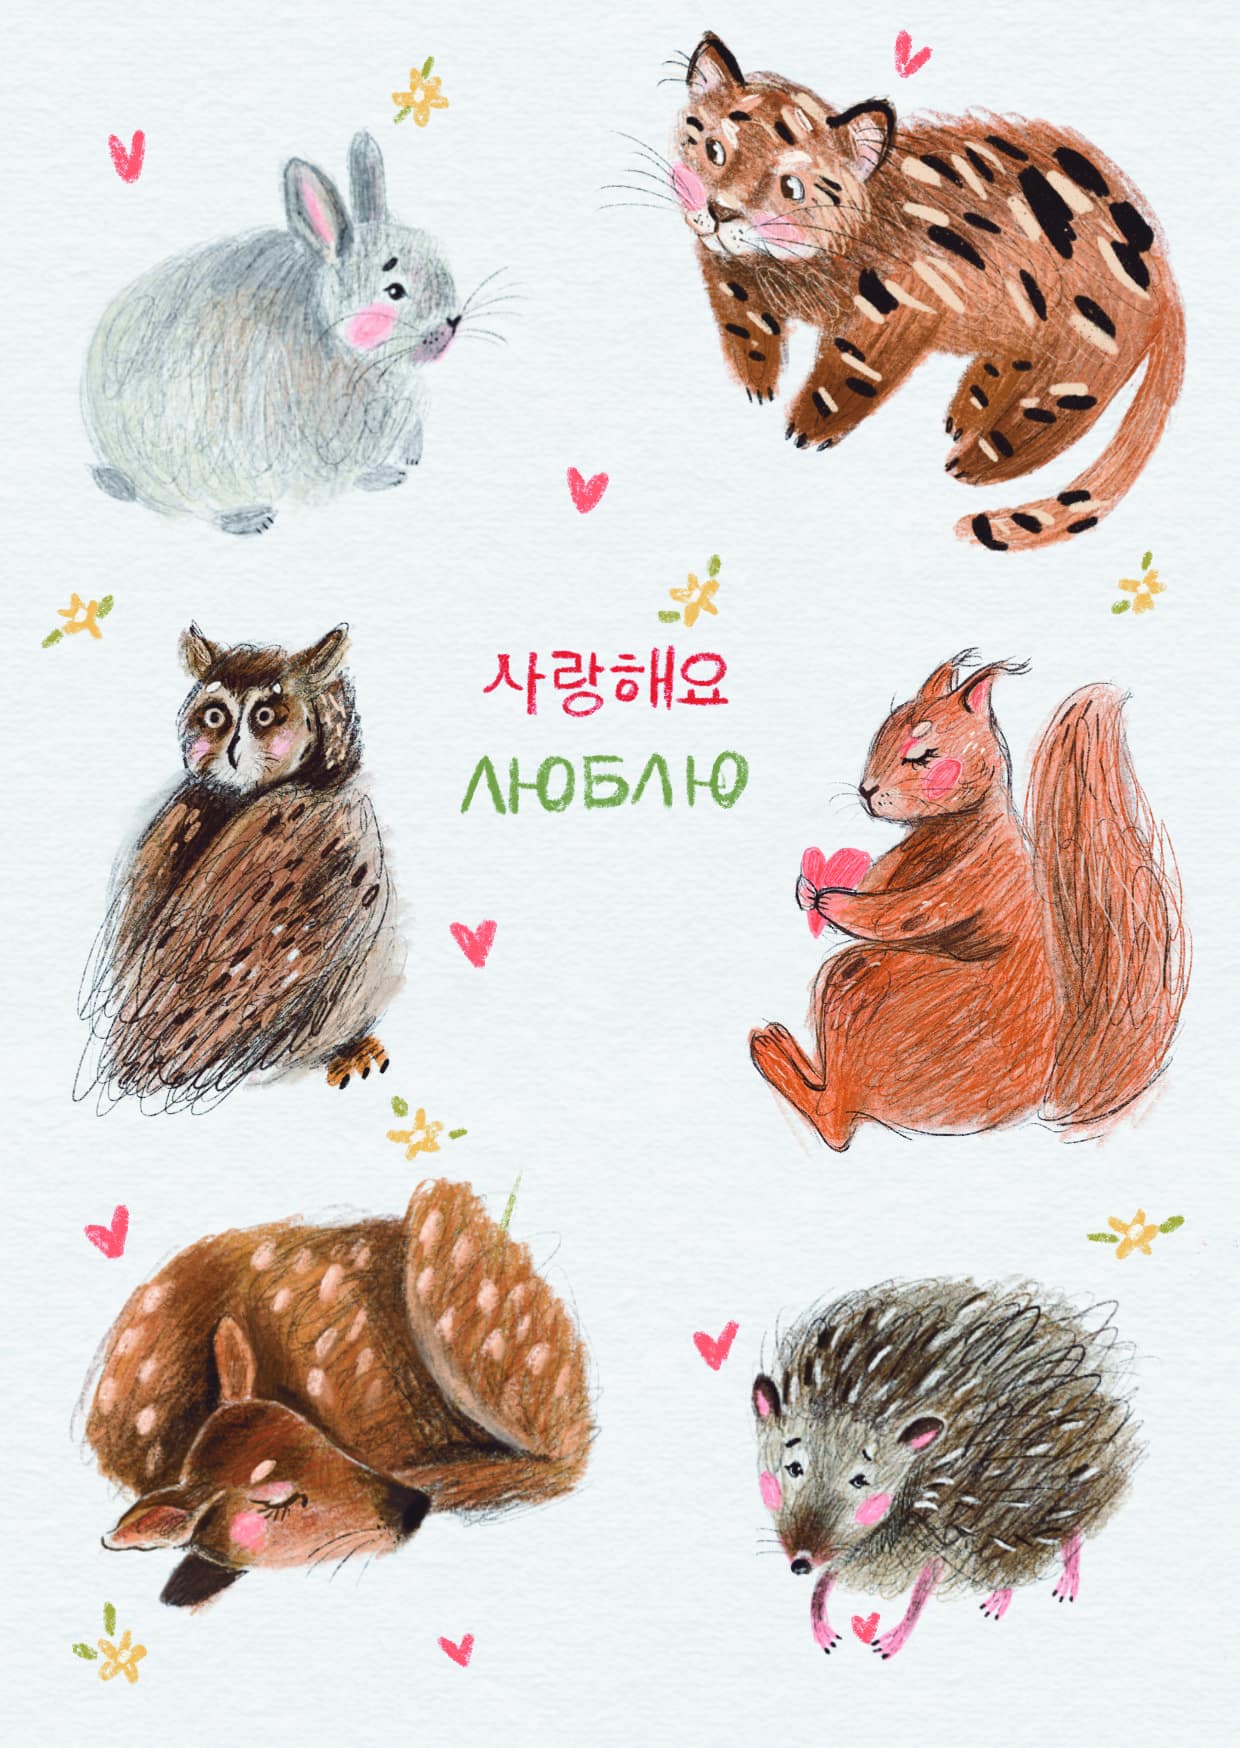 사랑해요
ЛЮБЛЮ